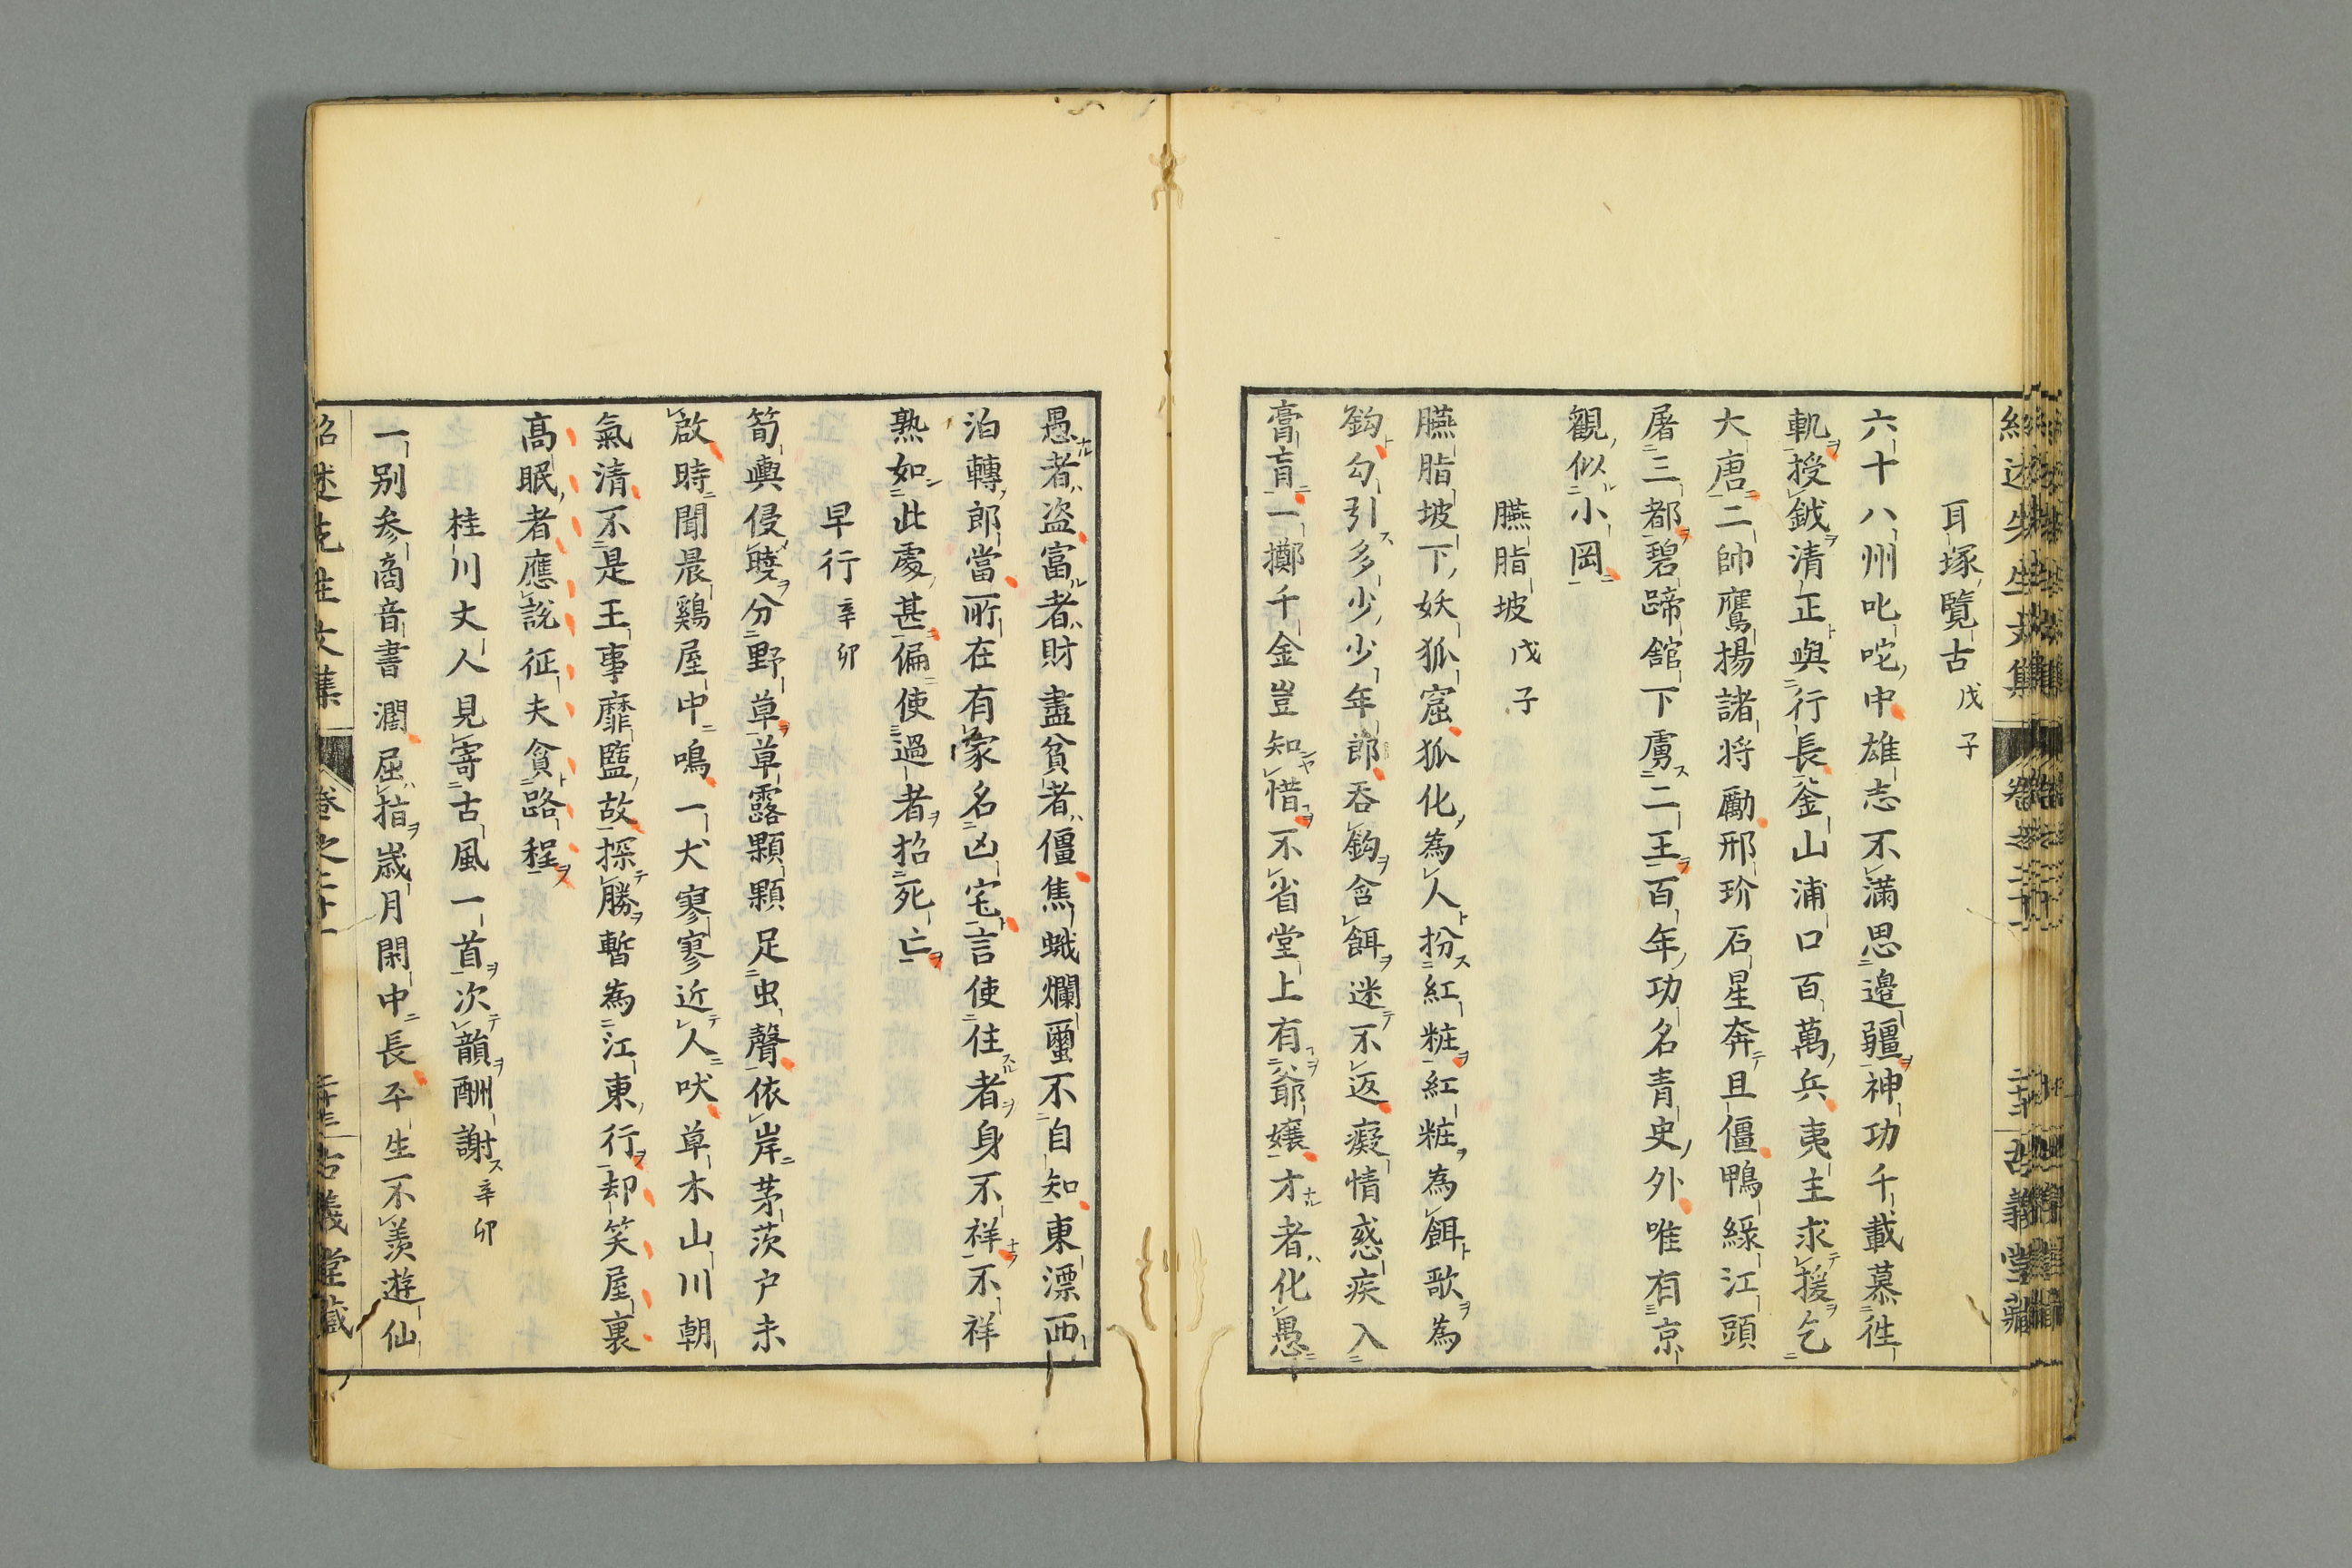 耳塚覽古戊子
六十八州叱咤中雄志不滿思邉疆神功千載慕徃
軌授鉞清正與行長釜山浦口百萬兵夷主求援乞
大唐二帥鷹揚諸将勵邢玠石星奔且僵鴨緑江頭
屠三都碧蹄舘下虜二王百年功名青史外唯有京
觀似小岡
臙脂坡戊子
臙脂坡下妖狐窟狐化為人扮紅粧紅粧為餌歌為
鈎勾引多少少年郎呑鈎含餌迷不返癡情惑疾入
膏肓一擲千金豈知惜不省堂上有爺孃才者化愚
愚者盗富者財盡貧者僵焦蛾爛蠒不自知東漂西
泊轉郎當所在有家名凶宅言使住者身不祥不祥
熟如此處甚偏使過者招死亡
早行辛卯
筍輿侵曉分野草草露顆顆足虫聲依岸茅茨戸未
啟時聞晨鷄屋中鳴一犬寥寥近人吠草木山川朝
氣清不是王事靡盬故探勝暫為江東行却笑屋裏
髙眠者應説征夫貪路程
桂川丈人見寄古風一首次韻酬謝辛卯
一别参商音書濶屈指歳月閑中長平生不羨遊仙
紹述先生文集 卷之二十一 古義堂藏